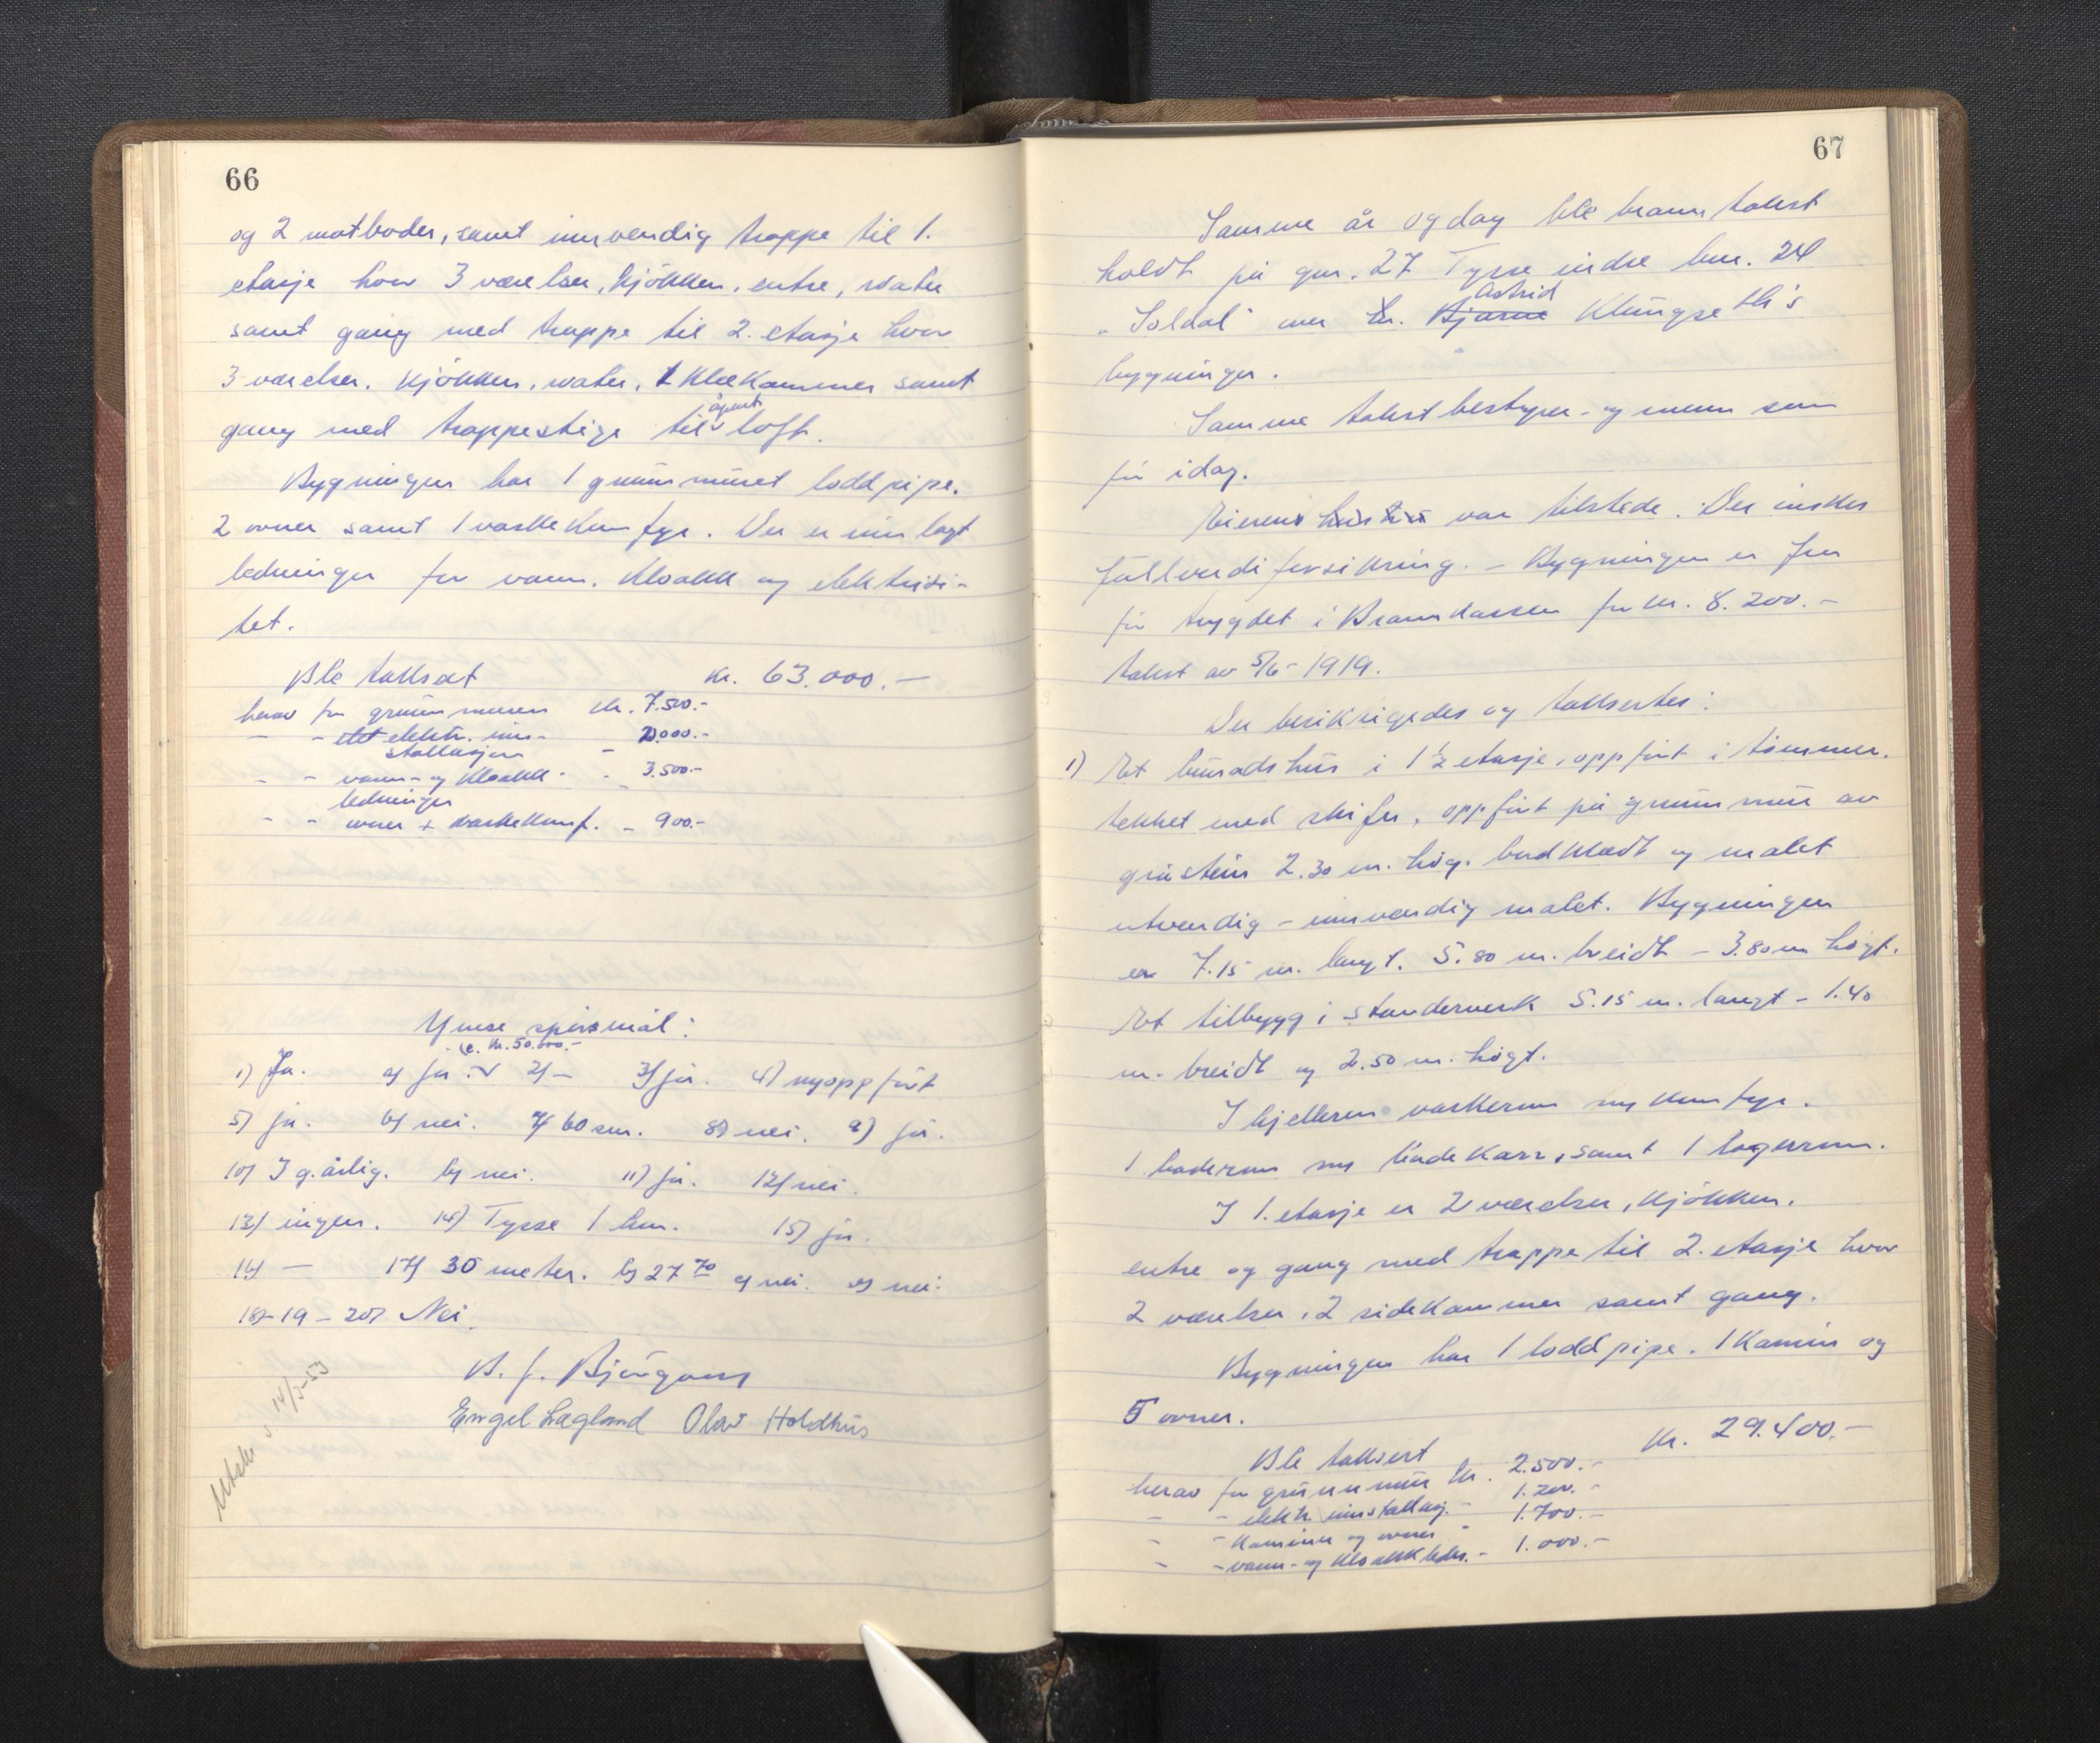 66
og 2 matboder, samt innvendig trappe til 1.
etasje hvor 3 værelser, kjökken, entre, water
samt gang med trappe til 2. etasje hvor
3 værelser, kjökken, water, 1 klækammer samt
åpent
gang med trappestige til loft.
Bygningen har 1 grunnmuret loddpipe.
2 ovner samt 1 vaskekomfyr. Der er innlagt
ledninger for vann, kloakk og elektrisi-
tet.
Ble taksert kr. 63.000.—
herav for grunnmuren kr. 7.500.-
- - elektr. inn-
stallasjon - 2.000.-
- - vann- og kloakk- - 3.500.-
ledninger
- - ovner + vaskekomf. - 900.-
Ymse spörsmål:
c. kr. 50.000.-
1) Ja. a) ja. 2) — 3) ja. 4) nyoppfört
5) ja. 6) nei. 7) 60 cm. 8) nei. 9) ja.
10) 3 g. årlig. b) nei. 11) ja. 12) nei.
13) ingen. 14) Tysse 1 km. 15) ja.
16) — 17) 30 meter. b) 27 70 c) nei. d) nei.
18) - 19 - 20) Nei.
B. J. Björgum
Engel Lagland Olav Holdhus
Utskr. 14/3-53
67
Samme år og dag ble branntakst
holdt på gnr. 27 Tysse indre bnr. 24
Astrid
"Soldal" over hr. Bjarne Klungseth's
bygninger.
Samme takstbestyrer- og menn som
för idag.
Eieren var tilstede. Der önskes
fullverdiforsikring. - Bygningen er
för trygdet i Brannkassen for kr. 8.200.-
takst av 5/6-1919.
Der besiktigedes og taksertes:
1) Et våningshus i 1½ etasje, oppfört i tömmer.
tekket med skifer, oppfört på grunnmur av
gråstein 2.30 m. hög. bordkledt og malet
utvendig - innvendig malet. Bygningen
er 7.15 m. langt. 5.80 m. breidt - 3.80 m högt.
Et tilbygg i standerverk 5.15 m. langt - 1.40
m. breidt og 2.50 m. högt.
I kjelleren vaskerum m/ komfyr.
1 baderum m/ badekarr, samt 1 lagerrum.
I 1. etasje er 2 værelser, kjökken.
entre og gang med trappe til 2. etasje hvor
2 værelser, 2 sidekammer samt gang.
Bygningen har 1 loddpipe. 1 kamin og
5 ovner.
Ble taksert kr. 29.400.—
herav for grunnmur kr. 2.500.-
- - elektr. innstallasj. - 1.200.-
- - kaminn og ovner - 1.700.-
- - vann- og kloakkledn. - 1.000.-